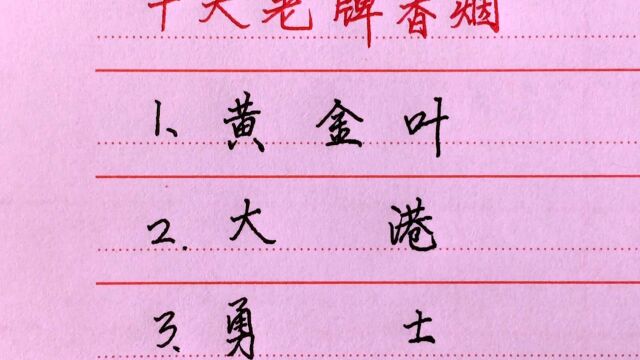 十大老牌香烟
1、黄金叶
2.大港
3、勇士